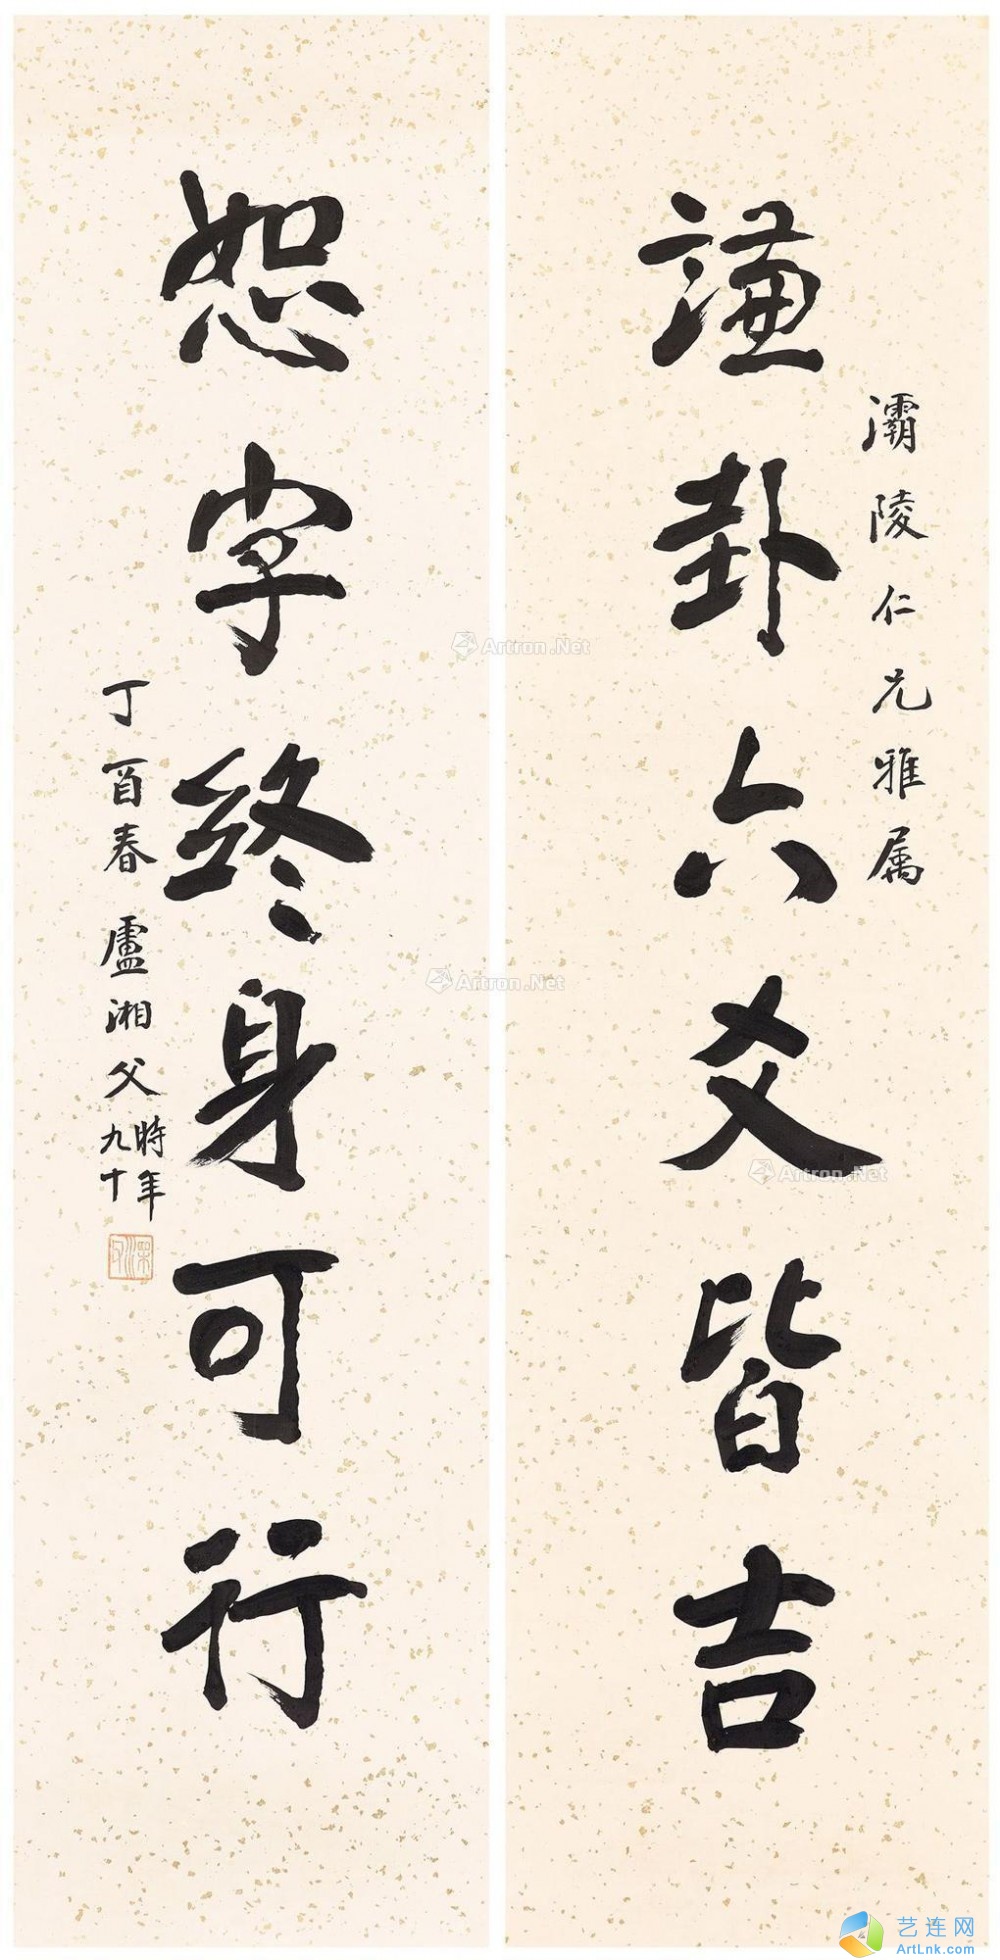 謙卦六爻皆吉
灞陵仁兄雅属
恕字終身可行
丁酉春 盧湘父 時年
九十
Artron.Net
Artron.Net
Artron.Net
艺连网
ArtLnk.com